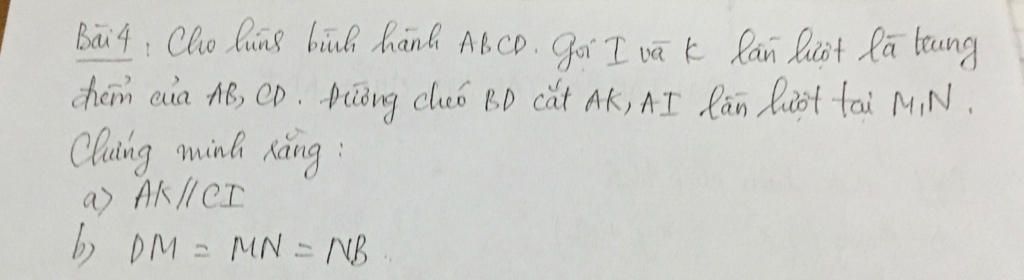 Bài 4: Cho hình bình hành ABCD. Gọi I và K lần lượt là trung
điểm của AB, CD. Đường chéo BD cắt AK, AI lần lượt tại M, N.
Chứng minh rằng:
a) AK//CI
b) DM = MN = NB.